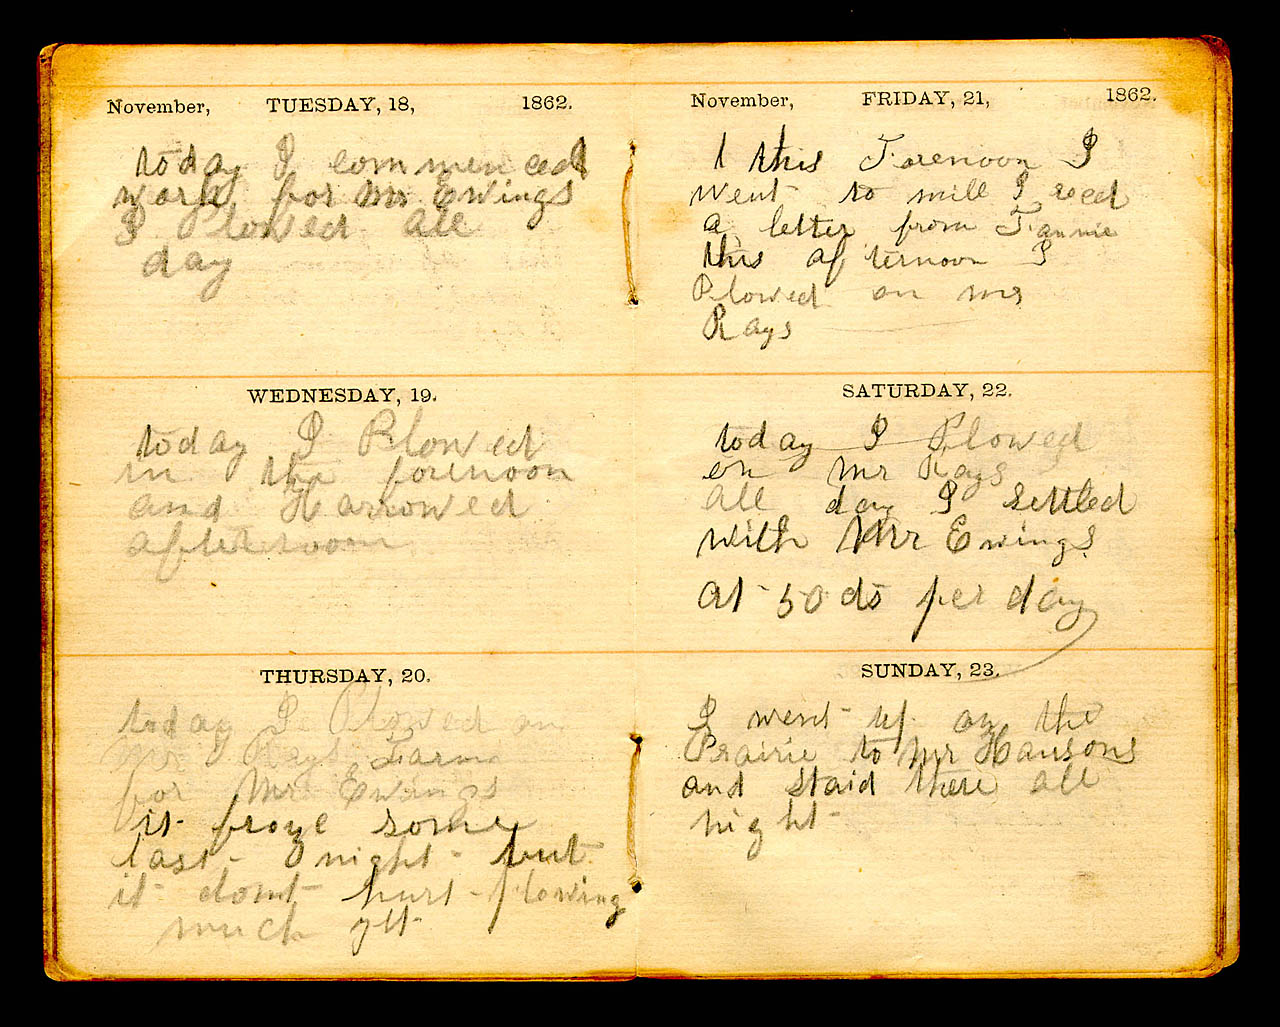 November, TUESDAY, 18, 1862.
today I commenced
work for Mr Ewings
I Plowed all
day
WEDNESDAY, 19.
today I Plowed
in the forenoon
and Harrowed
afternoon
THURSDAY, 20.
today I Plowed on
Mr Rays Farm
for Mr Ewings
it froze some
last night but
it dont hurt plowing
much yet
November, FRIDAY, 21, 1862.
this Forenoon I
went to mill I reed
a letter from Fannie
this afternoon I
Plowed on mr
Rays
SATURDAY, 22.
today I Plowed
on Mr Rays
all day I settled
with Mr Ewings
at 50 cts per day
SUNDAY, 23.
I went up on the
Prairie to Mr Hansons
and staid there all
night